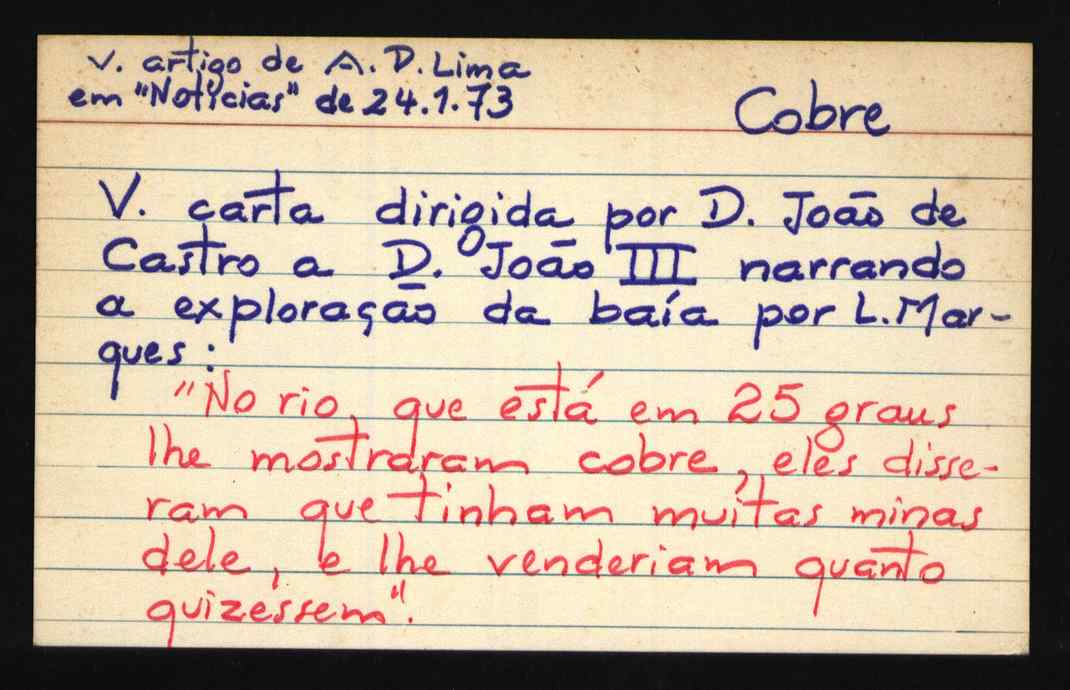 V. artigo de A. D. Lima
em "Notícias" de 24.1.73
Cobre
V. carta dirigida por D. João de
Castro a D. João III narrando
a exploração da baía por L. Mar-
ques:
"No rio, que está em 25 graus
lhe mostraram cobre, eles disse-
ram que tinham muitas minas
dele, e lhe venderiam quanto
quizessem".